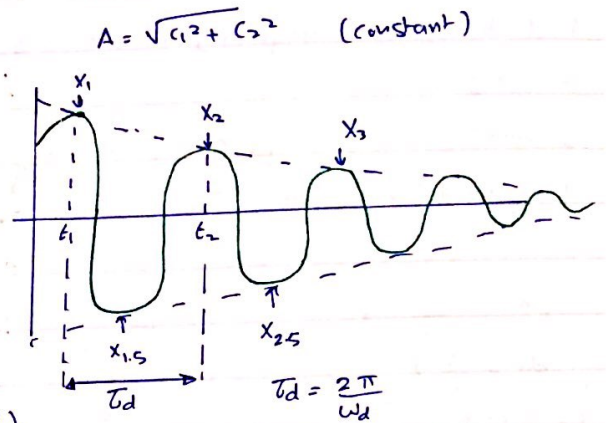 A = √C₁² + C₂² (constant)
X₁
X₂
X₃
t₁ t₂
X₁.₅
X₂.₅
τd
τd = 2π/ωd
)